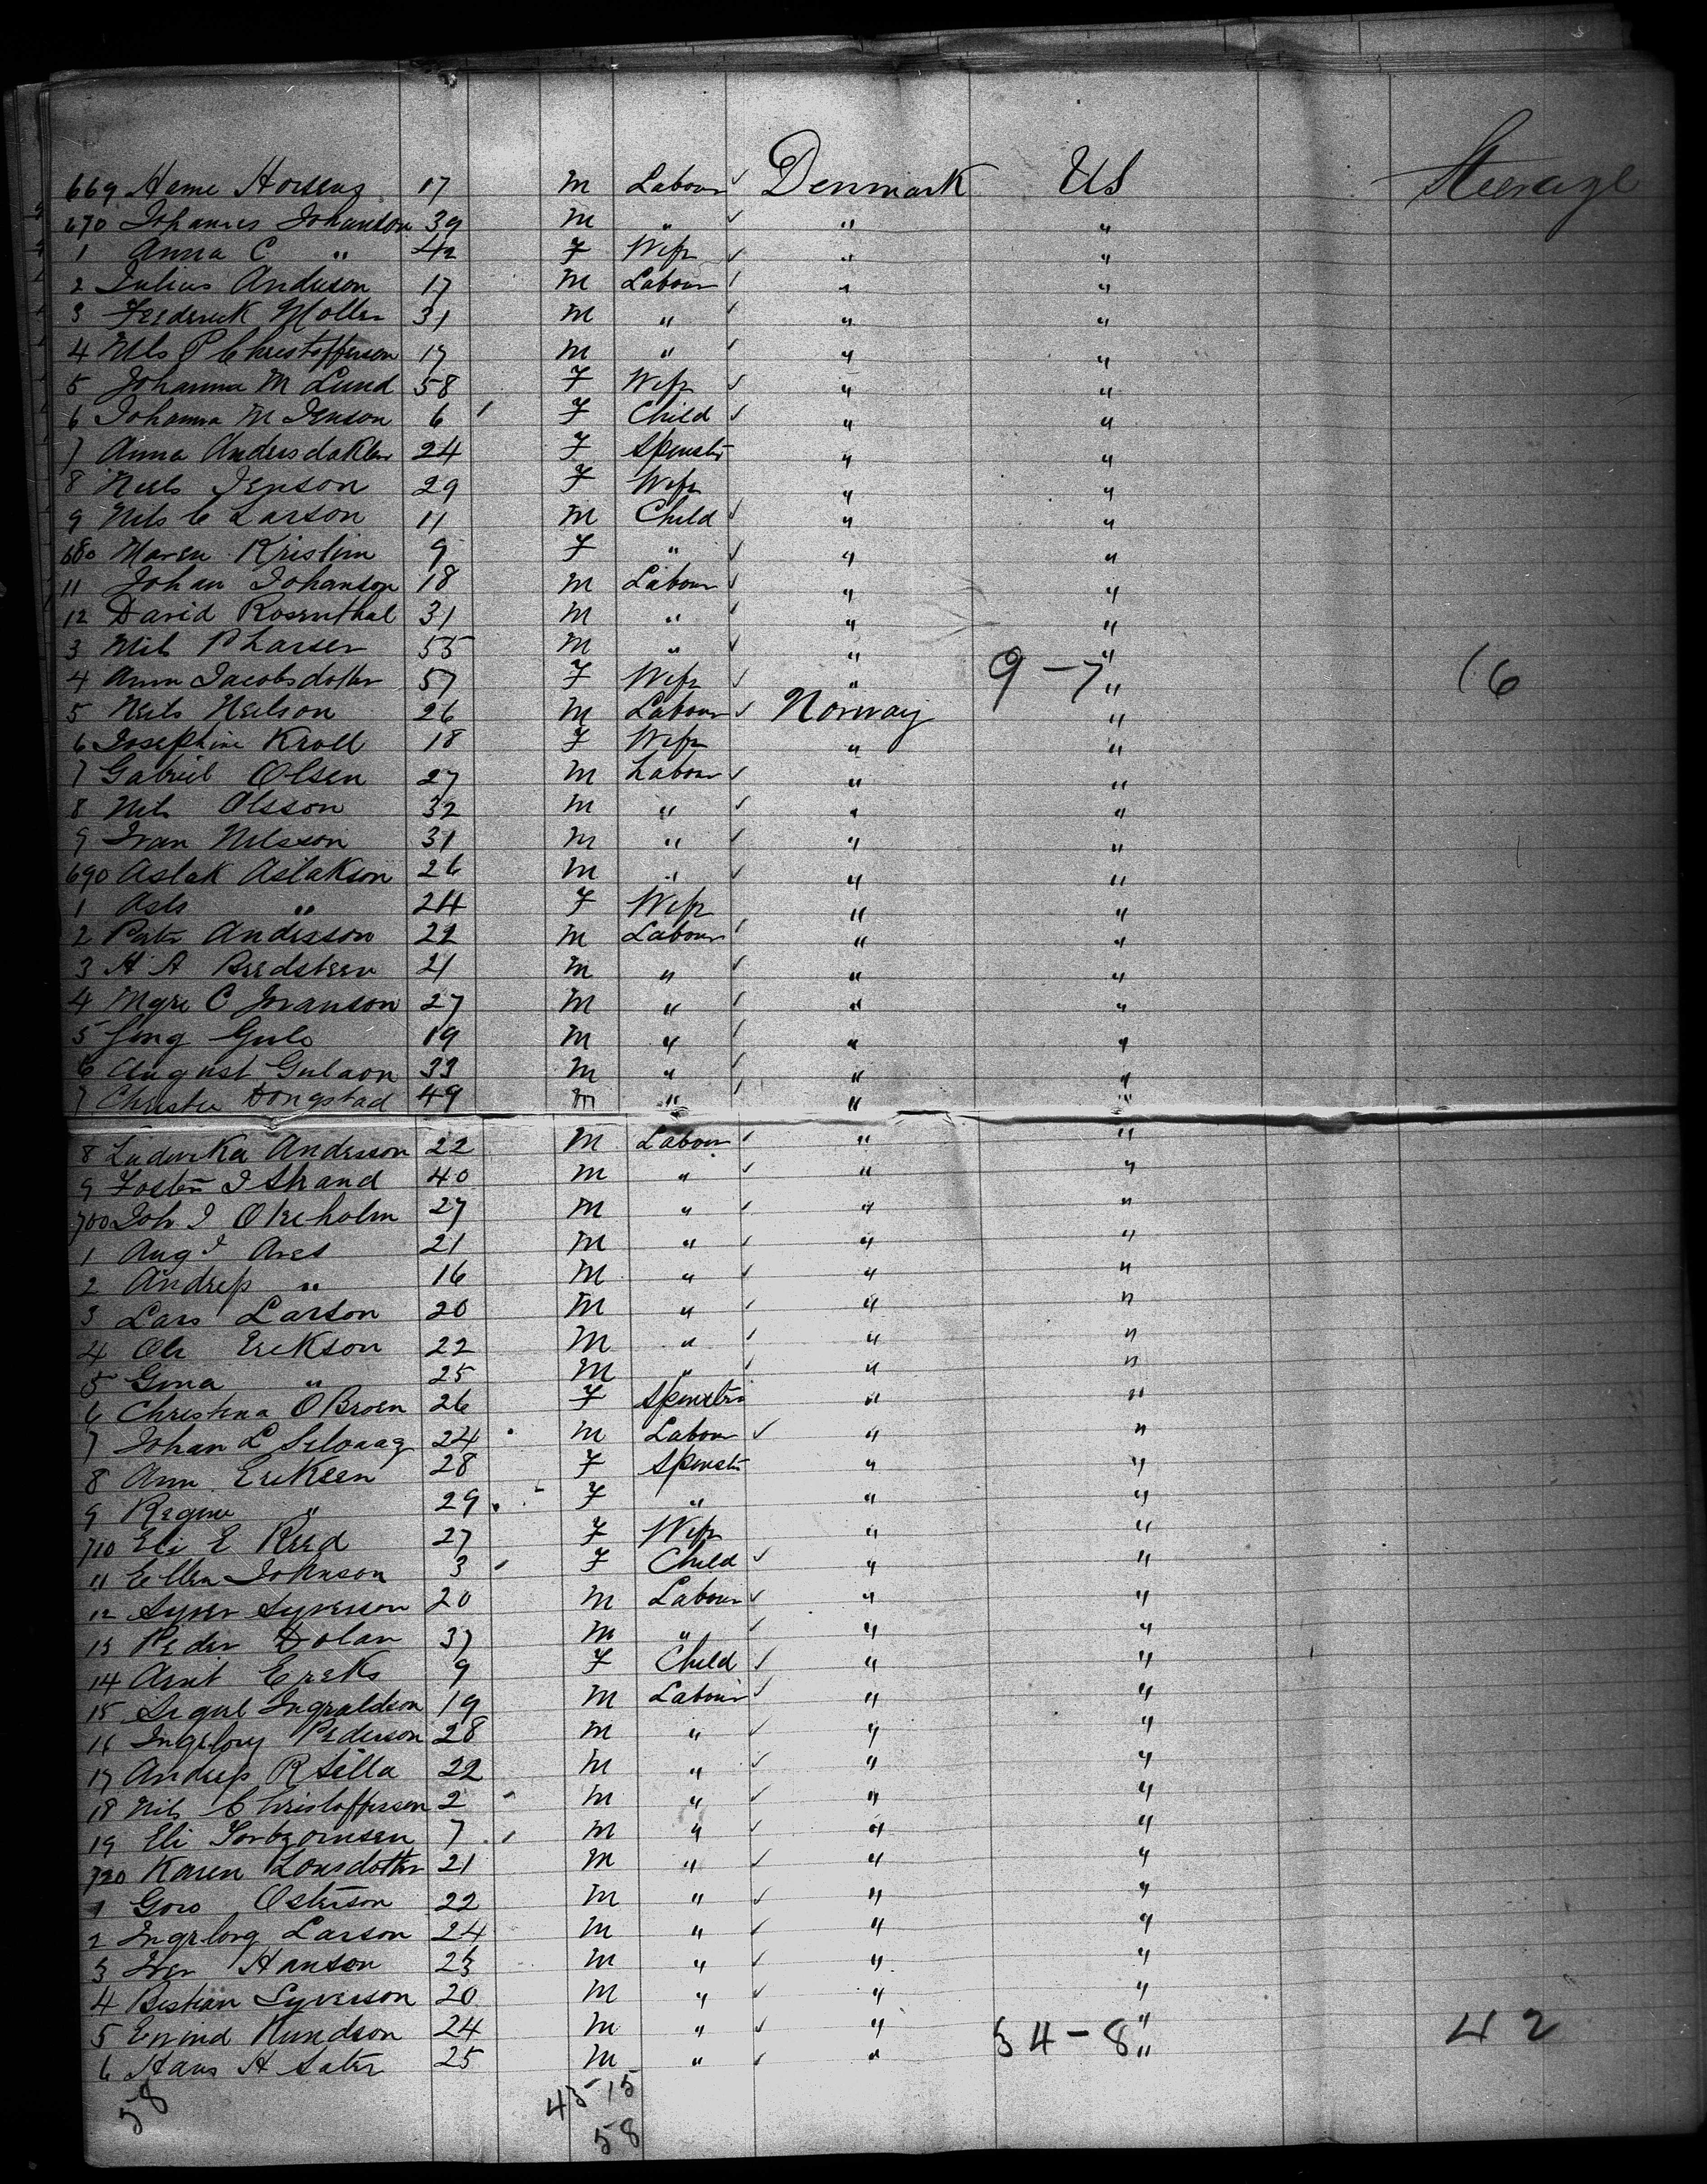 669 Hame 17 M Labour ✓ Denmark US Steerage
670 Johannes Johanson 39 M " ✓ " "
1 Anna C " 42 F Wife ✓ " "
2 Julius Anderson 17 M Labour ✓ " "
3 Frederick Moller 31 M " ✓ " "
4 Nils P Christofferson 17 M " ✓ " "
5 Johanna M Lund 58 F Wife ✓ " "
6 Johanna M Jenson 6 F Child ✓ " "
7 Anna 24 F Spinster " "
8 Neils Jenson 29 F Wife " "
9 Nils C Larson 11 M Child ✓ " "
680 Maren Kristin 9 F " ✓ " "
11 Johan Johanson 18 M Labour ✓ " "
12 David Rosenthal 31 M " ✓ " "
3 Nils P Larsen 55 M " ✓ " "
4 Ann Jacobsdotter 57 F Wife ✓ " 9-7 " 16
5 Neils Neilson 26 M Labour ✓ Norway "
6 Josephine Kroll 18 F Wife " "
7 Gabriel Olsen 27 M Labour ✓ " "
8 Nils Olsson 32 M " ✓ " "
9 Ivan Nilsson 31 M " ✓ " "
690 Aslak Aslakson 26 M " ✓ " "
1 Asls " 24 F Wife " "
2 Peter Andersson 22 M Labour ✓ " "
3 H A 21 M " ✓ " "
4 C Ivanson 27 M " ✓ " "
5 19 M " ✓ " "
6 August Gulaon 33 M " ✓ " "
7 Christee Dongstad 49 M " ✓ " "
8 Anderson 22 M Labour ✓ " "
9 Foster I Strand 40 M " ✓ " "
700 Joh I 27 M " ✓ " "
1 Aug I 21 M " ✓ " "
2 Andreß " 16 M " ✓ " "
3 Lars Larson 20 M " ✓ " "
4 Ole Erekson 22 M " ✓ " "
5 Gina " 25 M " ✓ " "
6 Christina O Broen 26 F Spinster " "
7 Johan L 24 M Labour ✓ " "
8 Ann Ereksen 28 F Spinster " "
9 Regine " 29 F " " "
710 Eli E Reed 27 F Wife " "
11 Ellen Johnson 3 F Child ✓ " "
12 Syver Syverson 20 M Labour ✓ " "
13 Peder Dolan 37 M " ✓ " "
14 Ereks 9 F Child ✓ " "
15 Ingvaldson 19 M Labour ✓ " "
16 Pederson 28 M " ✓ " "
17 Andreß R Silla 22 M " ✓ " "
18 Nils Christofferson 2 M " ✓ " "
19 Eli Torbjornsen 7 M " ✓ " "
720 Karen 21 M " ✓ " "
1 Goro Osterson 22 M " ✓ " "
2 Larson 24 M " ✓ " "
3 Iver Hanson 23 M " ✓ " "
4 Bestian Syverson 20 M " ✓ " "
5 Knudson 24 M " ✓ " 34-8 " 42
6 Hans H Sater 25 M " ✓ " "
58 43 15
58